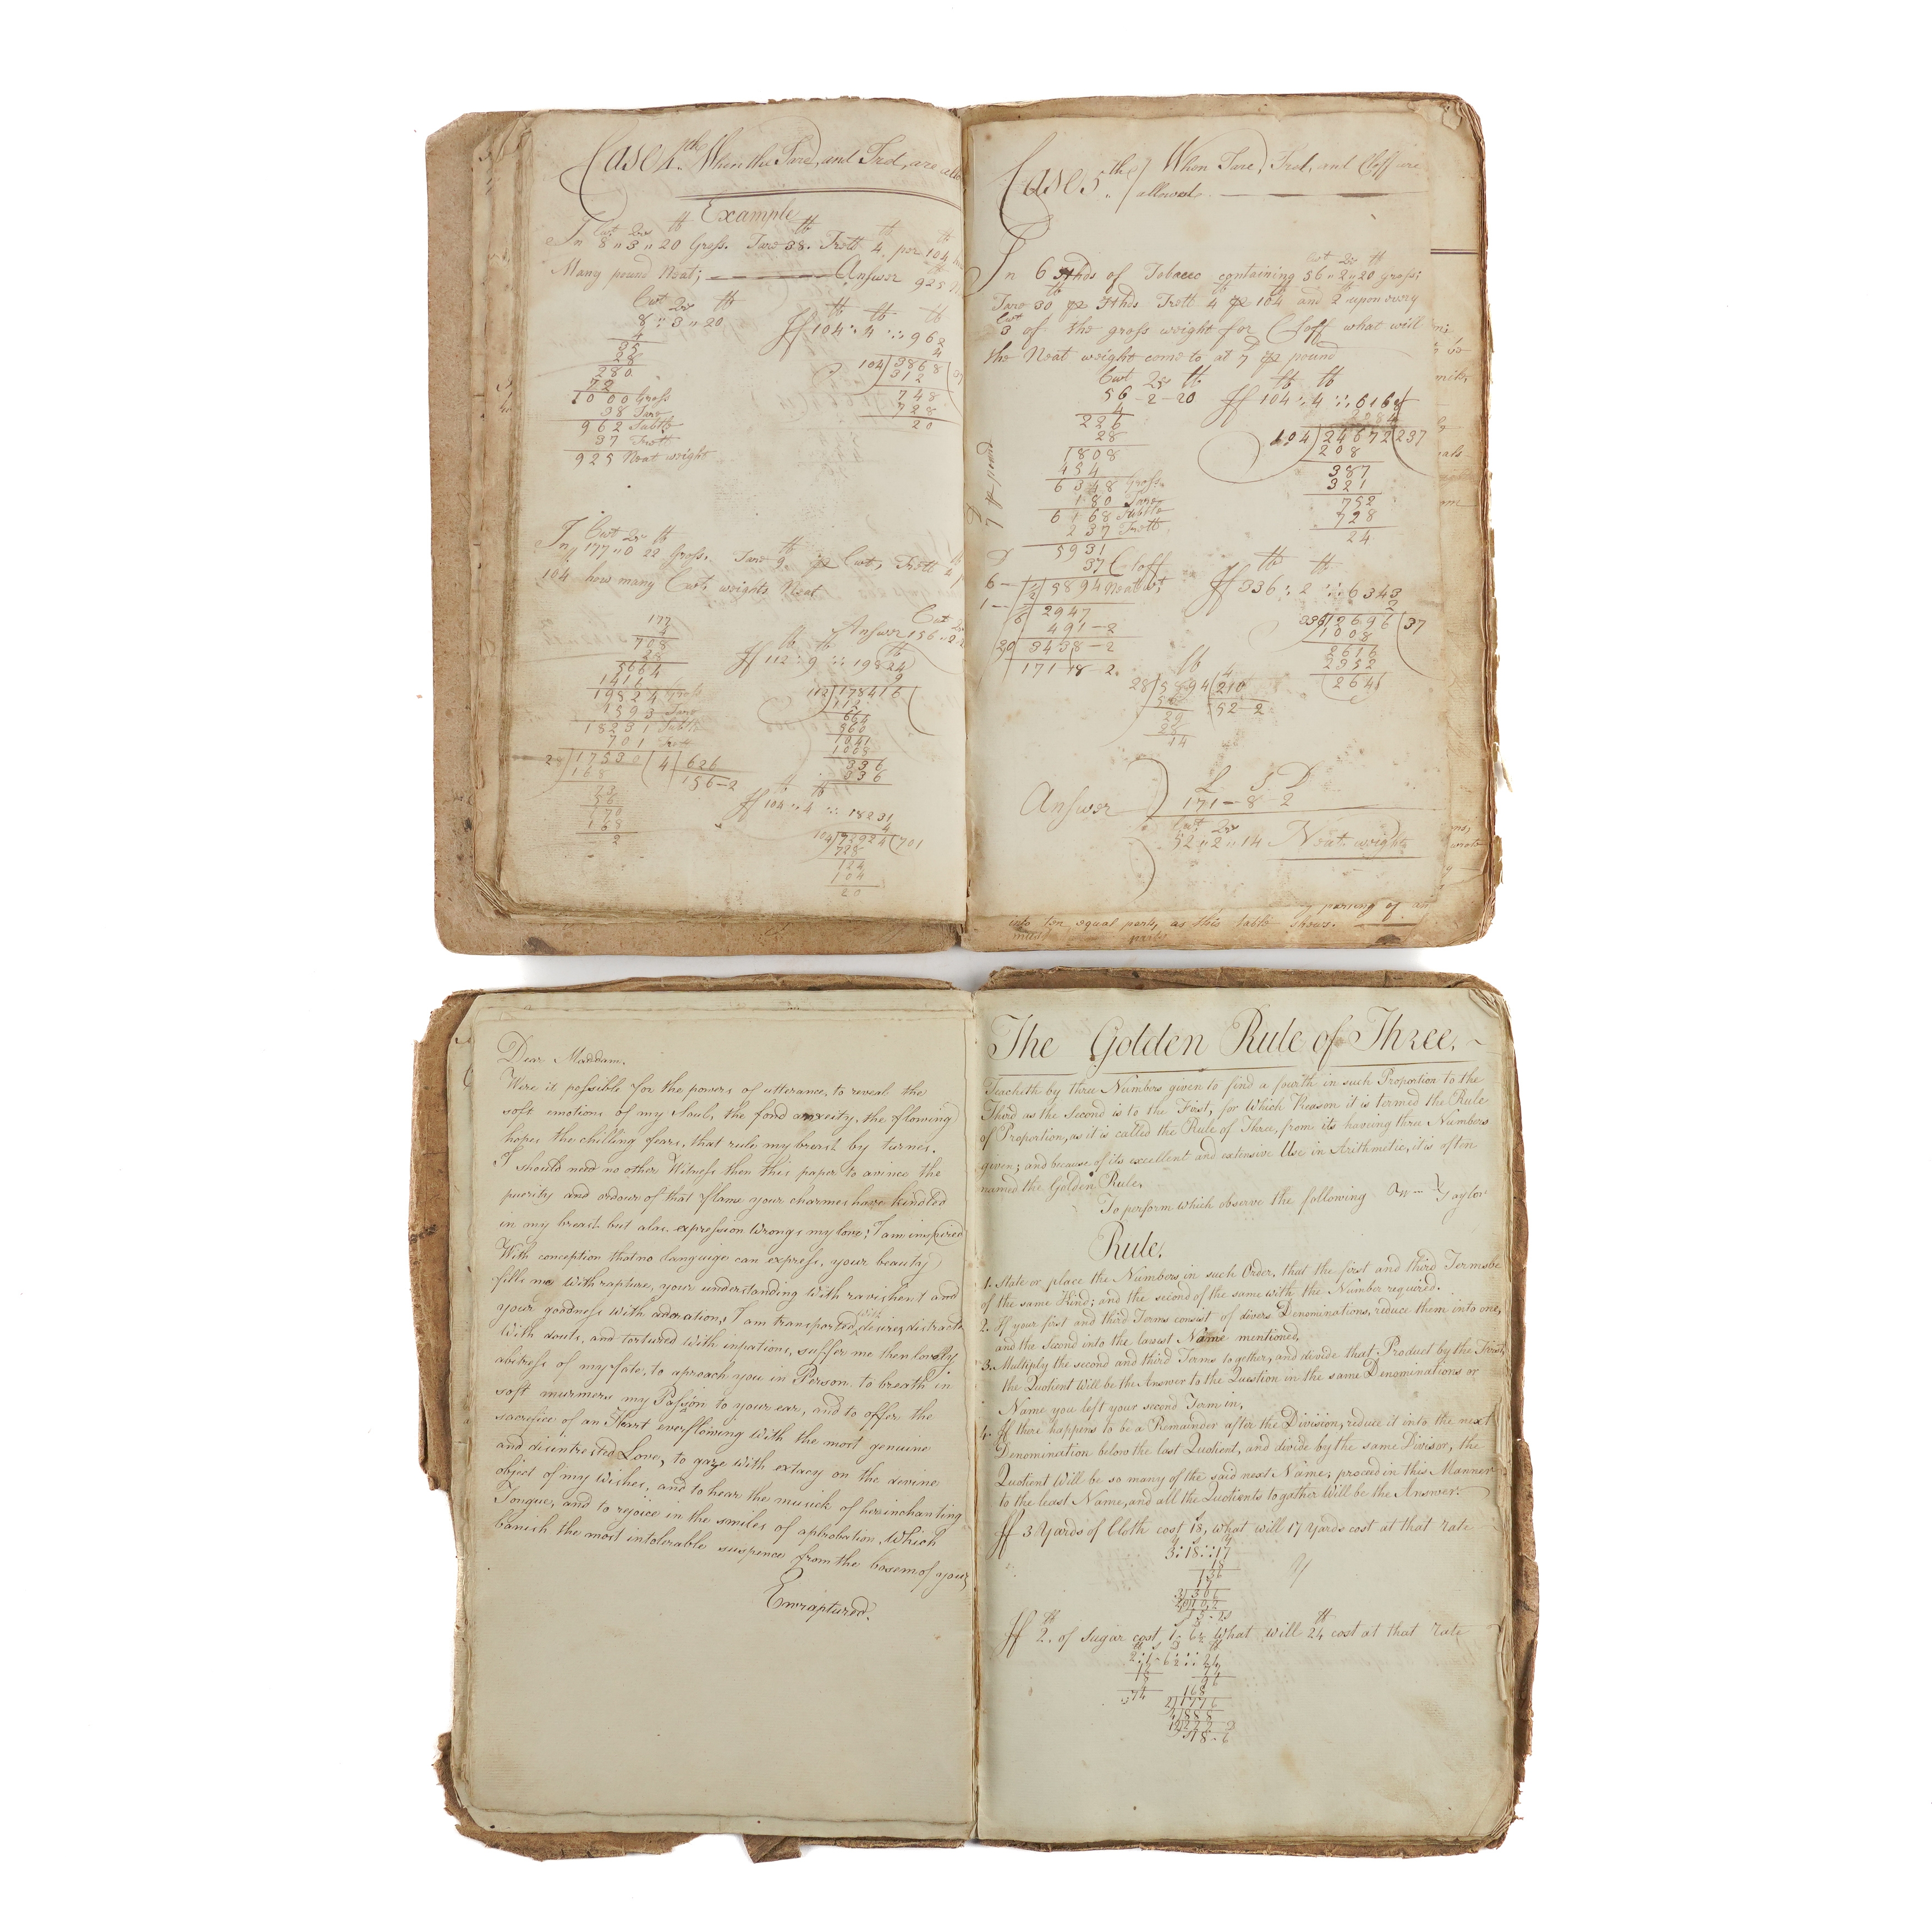 Case 4th. When the Tare, and Tret, are
Example
Cwt Qrs ℔ ℔ ℔ ℔
In 8 " 3 " 20 Gross. Tare 38. Trett 4, per 104
Many pound Neat; Answer 925
Cwt Qrs ℔
8 " 3 " 20
4
35
28
280
72
1000 Gross
38 Tare
962 Subtle
37 Trett
925 Neat weight
℔ ℔ ℔
If 104 : 4 :: 962
4
104)3868(37
312
748
728
20
Cwt Qrs ℔ ℔
In 177 " 0 22 Gross. Tare 9 pr Cwt, Trett 4
104 how many Cwt. weights Neat
Cwt Qrs
Answer 156 " 2
177
4
708
28
5664
1416
19824 Gross
1593 Tare
18231 Subtle
701 Trett
17530(4)626
168 156-2
56
170
168
2
℔ ℔ ℔
If 112 : 9 :: 19824
9
112)178416(
112
664
560
1041
1008
336
336
℔
If 104 : 4 :: 18231
4
104)72924(701
728
124
104
20
Case 5th) When Tare, Tret, and Cloff are
allowed
Cwt Qrs ℔
In 6 Hhds of Tobacco containing 56 " 2 " 20 gross;
Tare 30 pr Hhds Trett 4 pr 104 and 2 upon every
Cwt
3 of the gross weight for Cloff what will
the Neat weight come to at 7 pr pound
Cwt Qrs ℔
56 - 2 - 20
4
226
28
1808
454
6348 Gross
180 Tare
6168 Subtle
237 Trett
5931
37 Cloff
5894 Neat wt
2947
491-2
20 3438-2
171-18 2
7 pr pound
℔ ℔
If 104 : 4 :: 6168
4
104)24672(237
208
387
321
752
728
24
℔ ℔
If 336 : 2 :: 6343
2
336)12696(37
1008
2616
2352
264
℔ 4
28)5894(210
52-2
29
28
14
L S D
Answer 171-8-2
Cwt Qrs
52 " 2 " 14 Neat weight
parsing of
into ten equal parts, as this table shows.
Dear Maddam.
Were it possible for the powers of utterance, to reveal the
soft emotions of my Soul, the fond anxeity, the flowing
hopes the chilling fears, that rule my breast by turnes.
I should need no other Witness then this paper to avince the
purity and ardour of that flame your charmes have kindled
in my breast but alas. expression wrongs my love, I am inspired
With conception that no languige can express, your beauty
fills me with rapture, your understanding with ravishent and
your goodness with adoration, I am transported with desires, distracte
with douts, and tortured with inpations, suffer me then lovely
abitress of my fate, to aproach you in Person to breath in
soft murmers my Passion to your ear, and to offer the
sacrefice of an Heart everflowing with the most genuine
and disentrested Love, to gaze with extacy on the devine
object of my wishes, and to hear the musick of her inchanting
Tongue, and to rejoice in the smiles of aphrobation, Which
banish the most intolerable suspence from the bosem of your
Enraptured.
The Golden Rule of Three.
Teacheth by three Numbers given to find a fourth in such Proportion to the
Third as the Second is to the First, for which Reason it is termed the Rule
of Proportion, as it is called the Rule of Three, from its having three Numbers
given; and because of its excellent and extensive Use in Arithmetic, it is often
named the Golden Rule,
To perform which observe the following Taylor
Rule.
1. State or place the Numbers in such Order, that the first and third Terms be
of the same Kind; and the second of the same with the Number required.
2. If your first and third Terms consist of divers Denominations, reduce them into one,
and the Second into the lowest Name mentioned,
3. Multiply the second and third Terms together, and divide that Product by the First,
the Quotient will be the Answer to the Question in the same Denominations or
Name you left your second Term in,
4. If there happens to be a Remainder after the Division, reduce it into the next
Denomination below the last Quotient, and divide by the same Divisor, the
Quotient Will be so many of the said next Name; proceed in this Manner
to the least Name, and all the Quotients together Will be the Answer.
If 3 Yards of Cloth cost 18s, what will 17 Yards cost at that rate
3 : 18 :: 17
18
136
17
3)306
If 2℔. of Sugar cost 1s 6½ What will 24℔ cost at that rate
2 : 1-6½ :: 24
12
74
96
168
2)1776
4)888
12)222
18-6